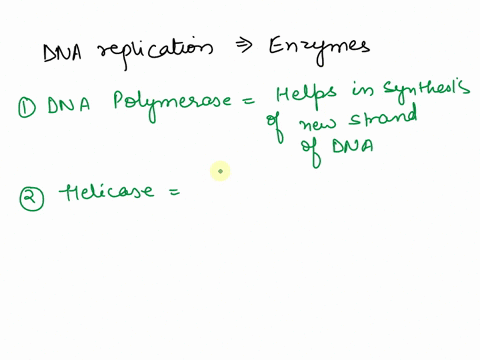 DNA replication ⇒ Enzymes
① DNA Polymerase = Helps in synthesis
of new strand
of DNA
② Helicase =